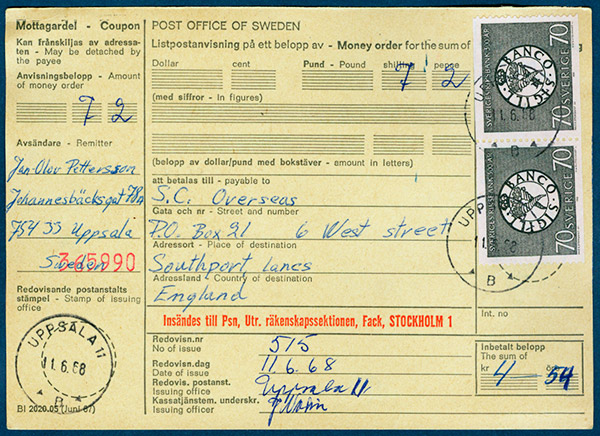 Mottagardel - Coupon
Kan frånskiljas av adressaten - May be detached by the payee
Anvisningsbelopp - Amount of money order
7 2
Avsändare - Remitter
Jan-Olov Pettersson
Johannesbäcksgat 78A
754 33 Uppsala
Sweden
365090
Redovisande postanstalts stämpel - Stamp of issuing office
UPPSALA 11
11.6.68
B
BI 2020.05 (Juni 67)
POST OFFICE OF SWEDEN
Listpostanvisning på ett belopp av - Money order for the sum of
Dollar cent Pund - Pound shilling pence
7 2
(med siffror - in figures)
(belopp av dollar/pund med bokstäver - amount in letters)
att betalas till - payable to
S.C. Overseas
Gata och nr - Street and number
P.O. Box 21 6 West street
Adressort - Place of destination
Southport, Lancs
Adressland - Country of destination
England
Insändes till Psn, Utr. räkenskapssektionen, Fack, STOCKHOLM 1
Redovisn.nr
No of issue
515
Redovisn.dag
Date of issue
11.6.68
Redovis. postanst.
Issuing office
Uppsala 11
Kassatjänstem. underskr.
Issuing officer
Int. no
Inbetalt belopp
The sum of
kr öre
4 54
SVERIGES RIKSBANK 300 ÅR
BANCO SIGILL
70 SVERIGE 70
11.6.68
B
SVERIGES RIKSBANK 300 ÅR
BANCO SIGILL
70 SVERIGE 70
UPPSALA
11.6.68
B